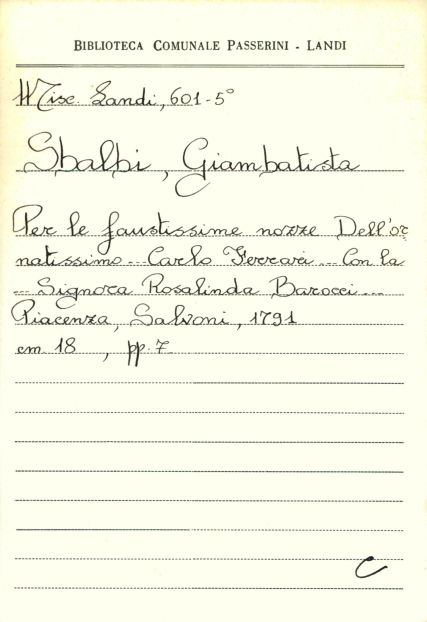 BIBLIOTECA COMUNALE PASSERINI - LANDI
Misc. Landi, 601-5°
Sbalbi, Giambatista
Per le faustissime nozze Dell'or
natissimo... Carlo Ferrari... Con la
... Signora Rosalinda Barocci...
Piacenza, Salvoni, 1791
cm. 18 , pp. 7
C